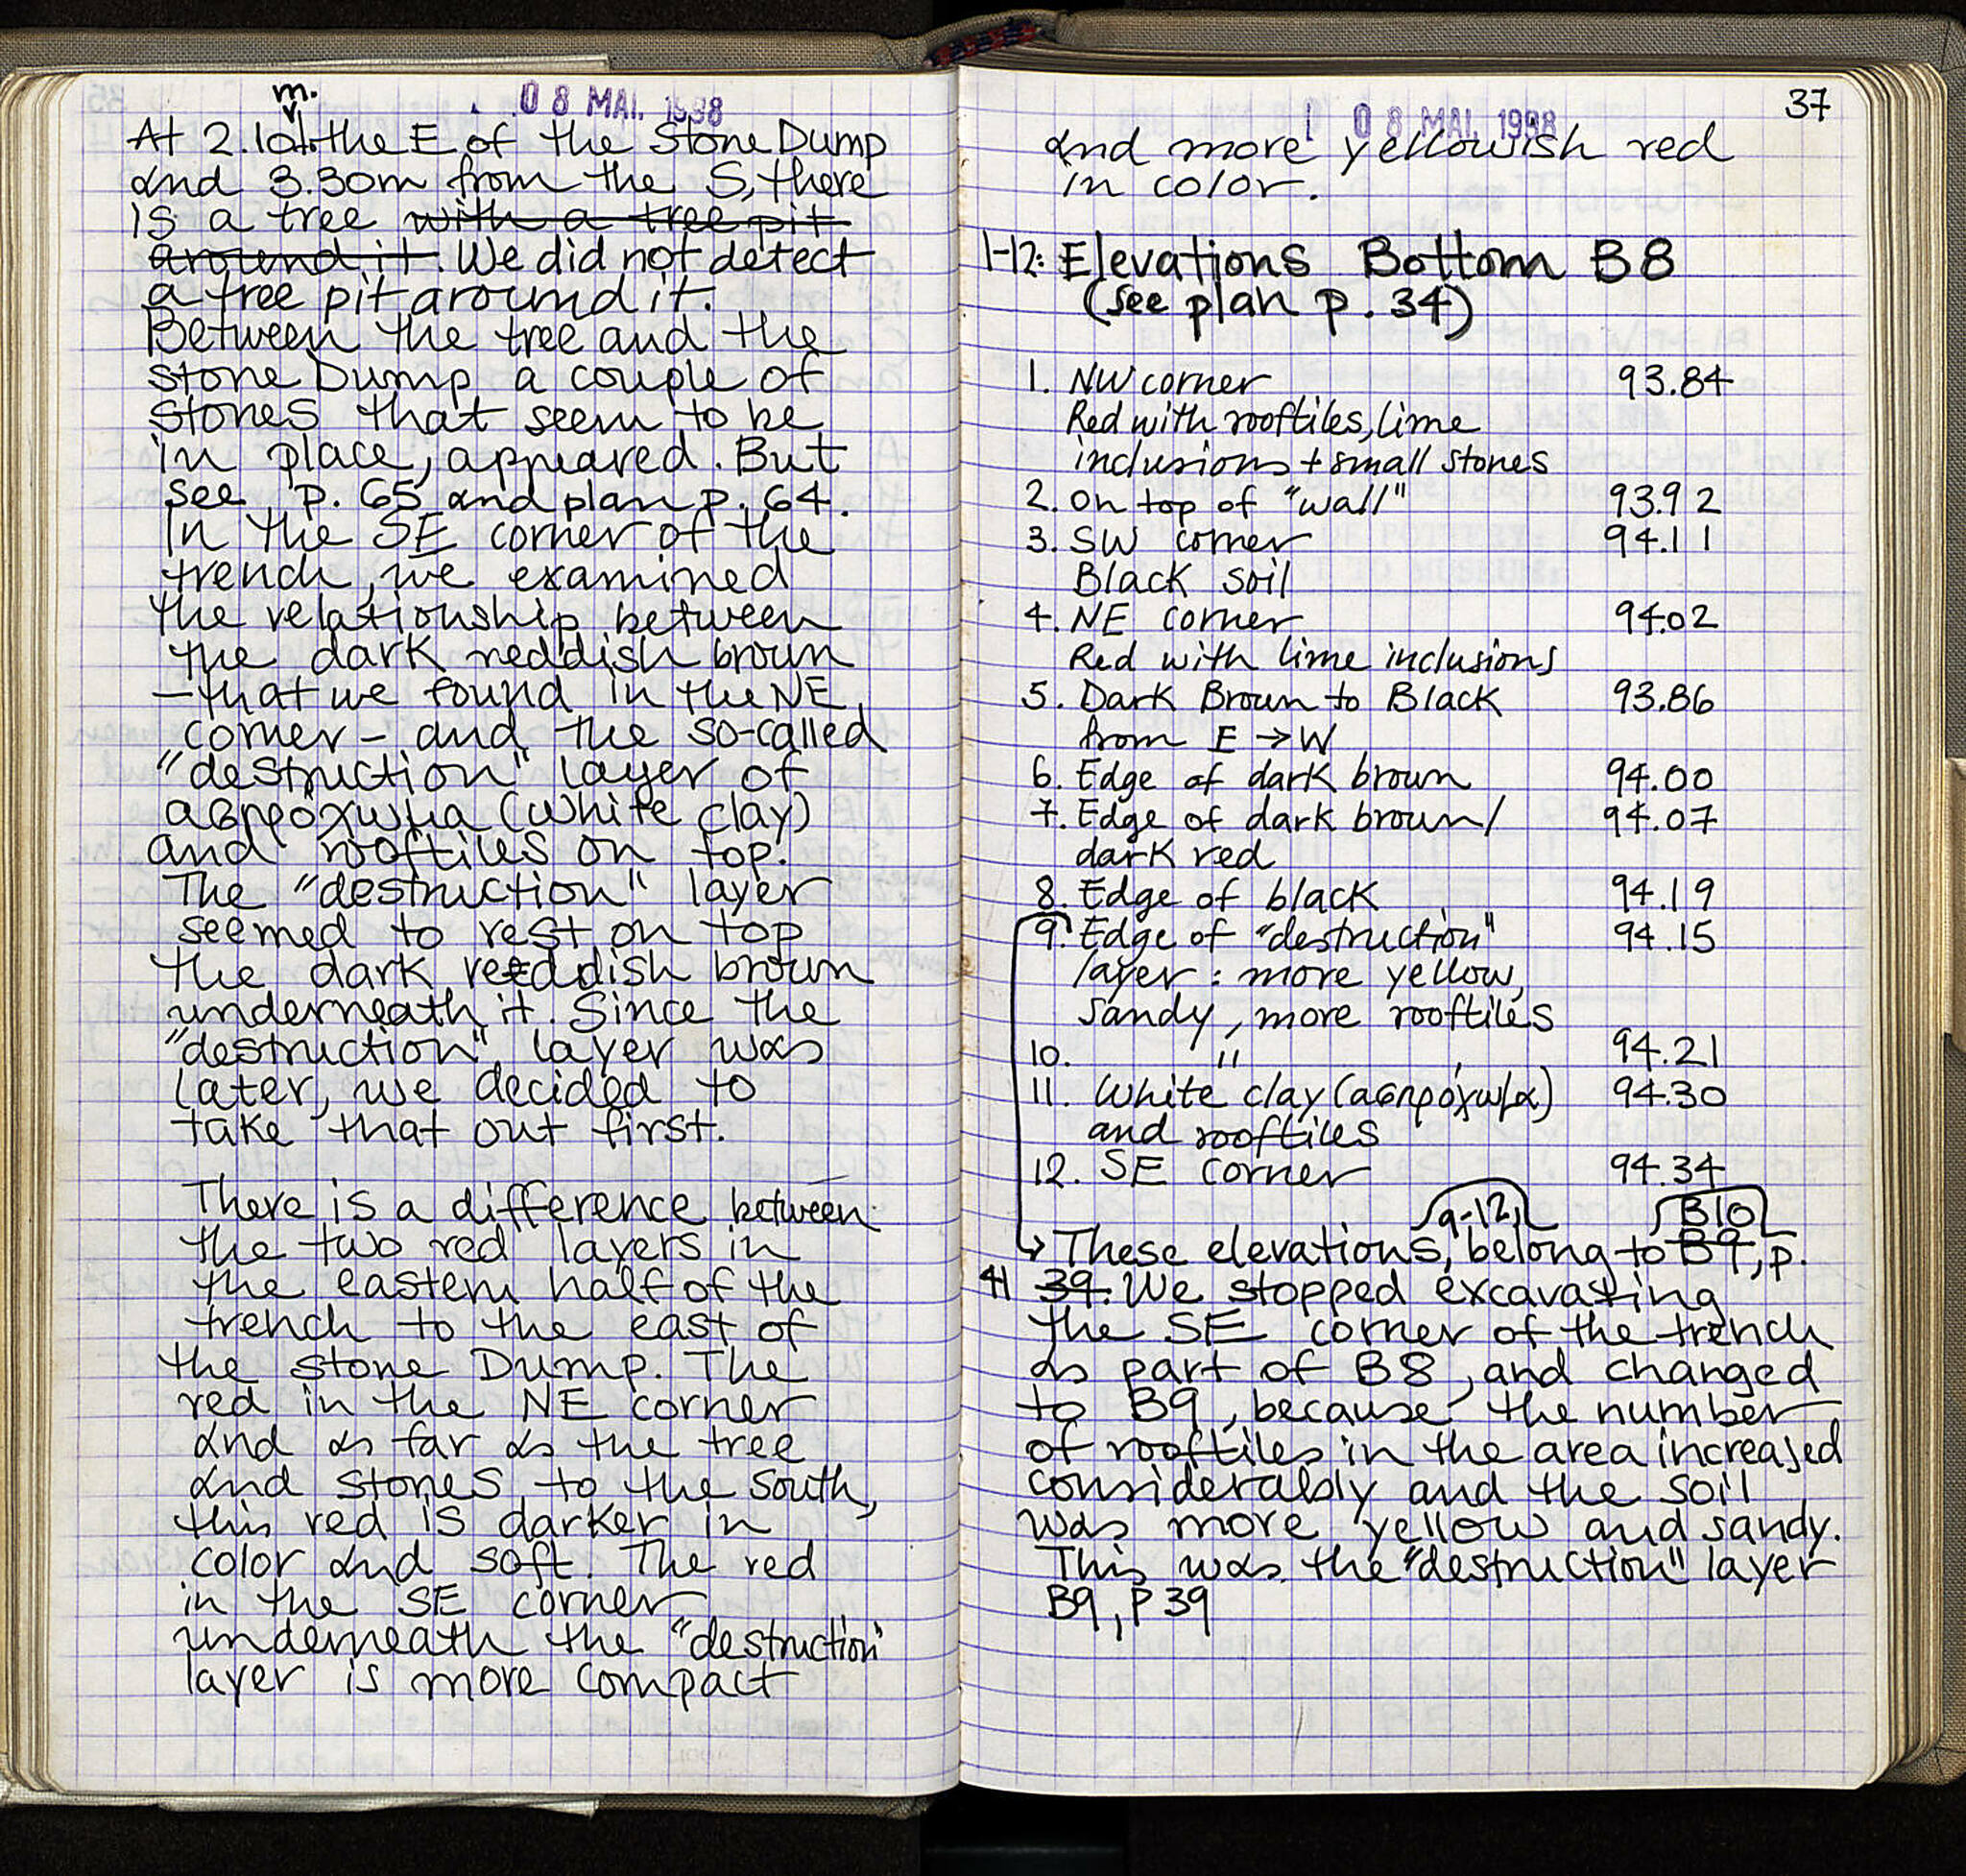 08 MAI 1998
m.
At 2.10 to the E of the Stone Dump
and 3.30m from the S, there
is a tree with a tree pit
around it. We did not detect
a tree pit around it.
Between the tree and the
stone Dump a couple of
stones that seem to be
in place, appeared. But
see p. 65 and plan p. 64.
In the SE corner of the
trench, we examined
the relationship between
the dark reddish brown
– that we found in the NE
corner – and the so-called
"destruction" layer of
ασπρόχωμα (white clay)
and rooftiles on top.
The "destruction" layer
seemed to rest on top
the dark reddish brown
underneath it. Since the
"destruction" layer was
later, we decided to
take that out first.
There is a difference between
the two "red" layers in
the eastern half of the
trench to the east of
the stone Dump. The
red in the NE corner
and as far as the tree
and stones to the south,
this red is darker in
color and soft. The red
in the SE corner
underneath the "destruction"
layer is more compact
08 MAI 1998
37
and more yellowish red
in color.
1-12: Elevations Bottom B8
(see plan p. 34)
1. NW corner 93.84
Red with rooftiles, lime
inclusions + small stones
2. On top of "wall" 93.92
3. SW corner 94.11
Black soil
4. NE corner 94.02
Red with lime inclusions
5. Dark Brown to Black 93.86
from E → W
6. Edge of dark brown 94.00
7. Edge of dark brown/ 94.07
dark red
8. Edge of black 94.19
9. Edge of "destruction" 94.15
layer: more yellow,
sandy, more rooftiles
10. " 94.21
11. White clay (ασπρόχωμα) 94.30
and rooftiles
12. SE corner 94.34
9-12 B10
→ These elevations, belong to B9, p.
41 39. We stopped excavating
the SE corner of the trench
as part of B8, and changed
to B9, because the number
of rooftiles in the area increased
considerably and the soil
was more yellow and sandy.
This was the "destruction" layer
B9, p 39